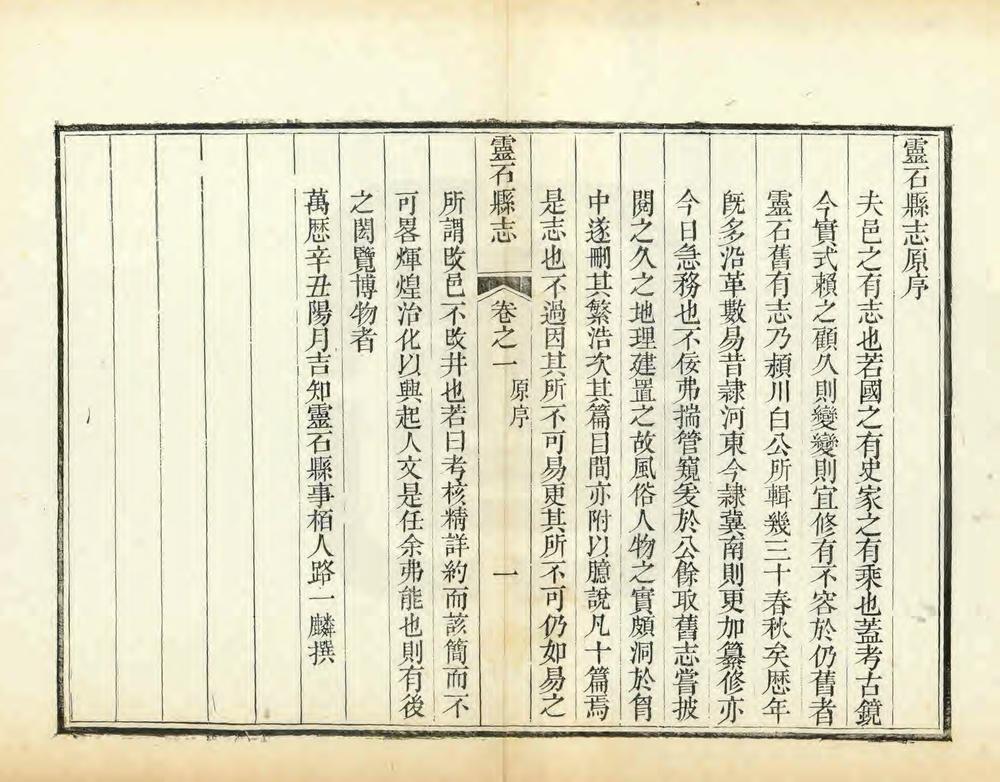 靈石縣志原序
夫邑之有志也若國之有史家之有乘也蓋考古鏡
今實式賴之顧久則變變則宜修有不容於仍舊者
靈石舊有志乃潁川白公所輯幾三十春秋矣歷年
旣多沿革數易昔隷河東今隷冀南則更加纂修亦
今日急務也不佞弗揣管窺爰於公餘取舊志嘗披
閱之久之地理建置之故風俗人物之實頗洞於胷
中遂刪其繁浩次其篇目間亦附以臆說凡十篇焉
是志也不過因其所不可易更其所不可仍如易之
靈石縣志 卷之一 原序 一
所謂改邑不改井也若曰考核精詳約而該簡而不
可畧煇煌治化以興起人文是任余弗能也則有後
之閎覽博物者
萬歷辛丑陽月吉知靈石縣事栢人路一麟撰